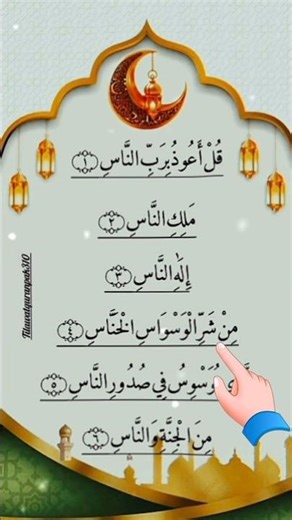 قُلْ أَعُوذُ بِرَبِّ النَّاسِ ۝١
مَلِكِ النَّاسِ ۝٢
إِلَٰهِ النَّاسِ ۝٣
مِنْ شَرِّ الْوَسْوَاسِ الْخَنَّاسِ ۝٤
يُوَسْوِسُ فِي صُدُورِ النَّاسِ ۝٥
مِنَ الْجِنَّةِ وَالنَّاسِ ۝٦
Tilawatquranpak310